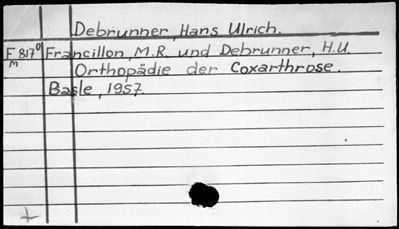 Debrunner, Hans Ulrich.
F 817⁰ Francillon, M.R. und Debrunner, H.U.
M Orthopädie der Coxarthrose.
Basle, 1957.